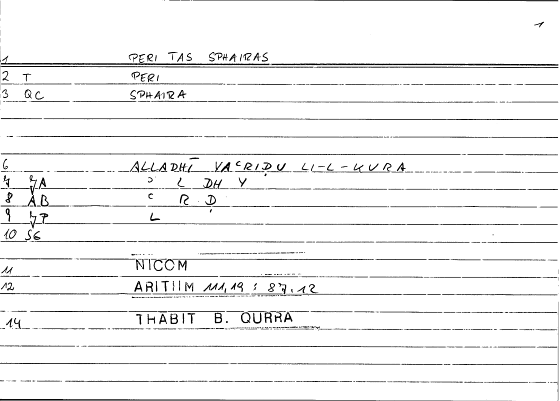 1
1 PERI TAS SPHAIRAS
2 T PERI
3 QC SPHAIRA
6 ALLADHĪ YAʿRIḌU LI-L-KURA
7 ʾ L DH Y
8 AB ʿ R Ḍ
9 L
10 SG
11 NICOM
12 ARITIIM 111,19 : 87,12
14 THĀBIT B. QURRA